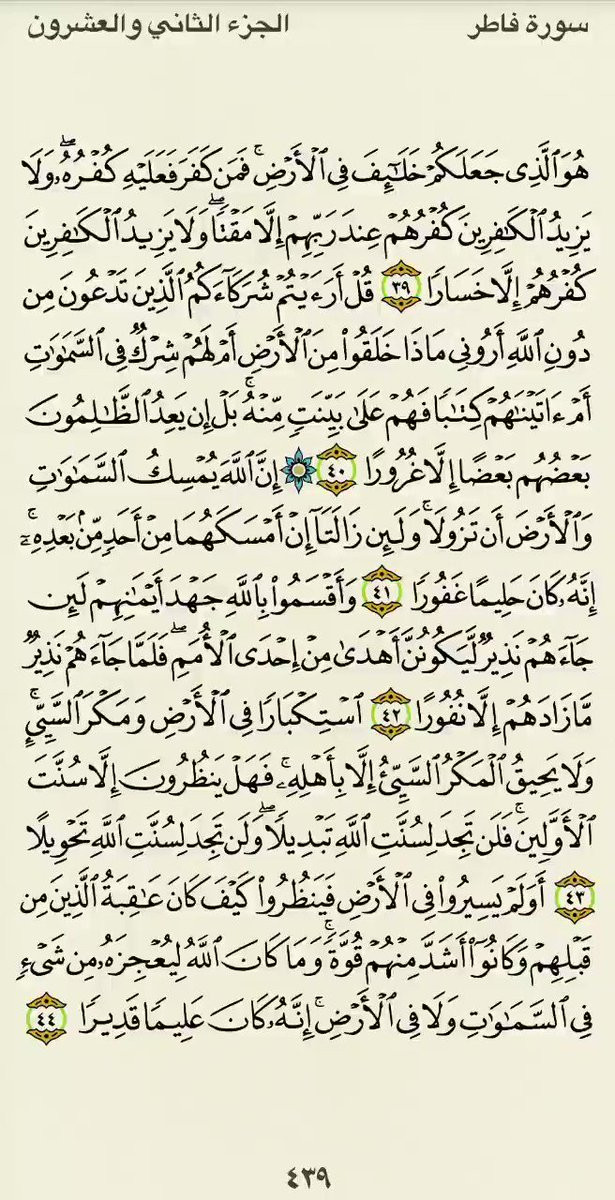 سورة فاطر
الجزء الثاني والعشرون
هُوَ ٱلَّذِى جَعَلَكُمْ خَلَٰٓئِفَ فِى ٱلْأَرْضِ ۚ فَمَن كَفَرَ فَعَلَيْهِ كُفْرُهُۥ ۖ وَلَا
يَزِيدُ ٱلْكَٰفِرِينَ كُفْرُهُمْ عِندَ رَبِّهِمْ إِلَّا مَقْتًا ۖ وَلَا يَزِيدُ ٱلْكَٰفِرِينَ
كُفْرُهُمْ إِلَّا خَسَارًا ٣٩ قُلْ أَرَءَيْتُمْ شُرَكَآءَكُمُ ٱلَّذِينَ تَدْعُونَ مِن
دُونِ ٱللَّهِ أَرُونِى مَاذَا خَلَقُوا۟ مِنَ ٱلْأَرْضِ أَمْ لَهُمْ شِرْكٌ فِى ٱلسَّمَٰوَٰتِ
أَمْ ءَاتَيْنَٰهُمْ كِتَٰبًا فَهُمْ عَلَىٰ بَيِّنَتٍ مِّنْهُ ۚ بَلْ إِن يَعِدُ ٱلظَّٰلِمُونَ
بَعْضُهُم بَعْضًا إِلَّا غُرُورًا ٤٠ إِنَّ ٱللَّهَ يُمْسِكُ ٱلسَّمَٰوَٰتِ
وَٱلْأَرْضَ أَن تَزُولَا ۚ وَلَئِن زَالَتَآ إِنْ أَمْسَكَهُمَا مِنْ أَحَدٍ مِّنۢ بَعْدِهِۦٓ ۚ
إِنَّهُۥ كَانَ حَلِيمًا غَفُورًا ٤١ وَأَقْسَمُوا۟ بِٱللَّهِ جَهْدَ أَيْمَٰنِهِمْ لَئِن
جَآءَهُمْ نَذِيرٌ لَّيَكُونُنَّ أَهْدَىٰ مِنْ إِحْدَى ٱلْأُمَمِ ۖ فَلَمَّا جَآءَهُمْ نَذِيرٌ
مَّا زَادَهُمْ إِلَّا نُفُورًا ٤٢ ٱسْتِكْبَارًا فِى ٱلْأَرْضِ وَمَكْرَ ٱلسَّيِّئِ ۚ
وَلَا يَحِيقُ ٱلْمَكْرُ ٱلسَّيِّئُ إِلَّا بِأَهْلِهِۦ ۚ فَهَلْ يَنظُرُونَ إِلَّا سُنَّتَ
ٱلْأَوَّلِينَ ۚ فَلَن تَجِدَ لِسُنَّتِ ٱللَّهِ تَبْدِيلًا ۖ وَلَن تَجِدَ لِسُنَّتِ ٱللَّهِ تَحْوِيلًا
٤٣ أَوَلَمْ يَسِيرُوا۟ فِى ٱلْأَرْضِ فَيَنظُرُوا۟ كَيْفَ كَانَ عَٰقِبَةُ ٱلَّذِينَ مِن
قَبْلِهِمْ وَكَانُوٓا۟ أَشَدَّ مِنْهُمْ قُوَّةً ۚ وَمَا كَانَ ٱللَّهُ لِيُعْجِزَهُۥ مِن شَىْءٍ
فِى ٱلسَّمَٰوَٰتِ وَلَا فِى ٱلْأَرْضِ ۚ إِنَّهُۥ كَانَ عَلِيمًا قَدِيرًا ٤٤
٤٣٩